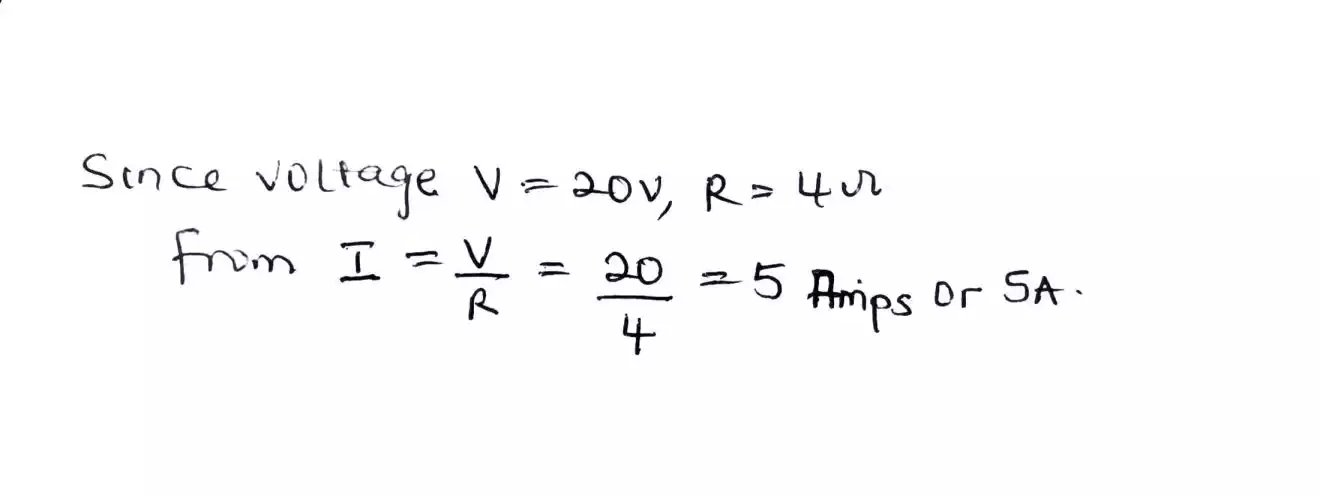 Since voltage V = 20V, R = 4Ω
From I = V/R = 20/4 = 5 Amps or 5A.